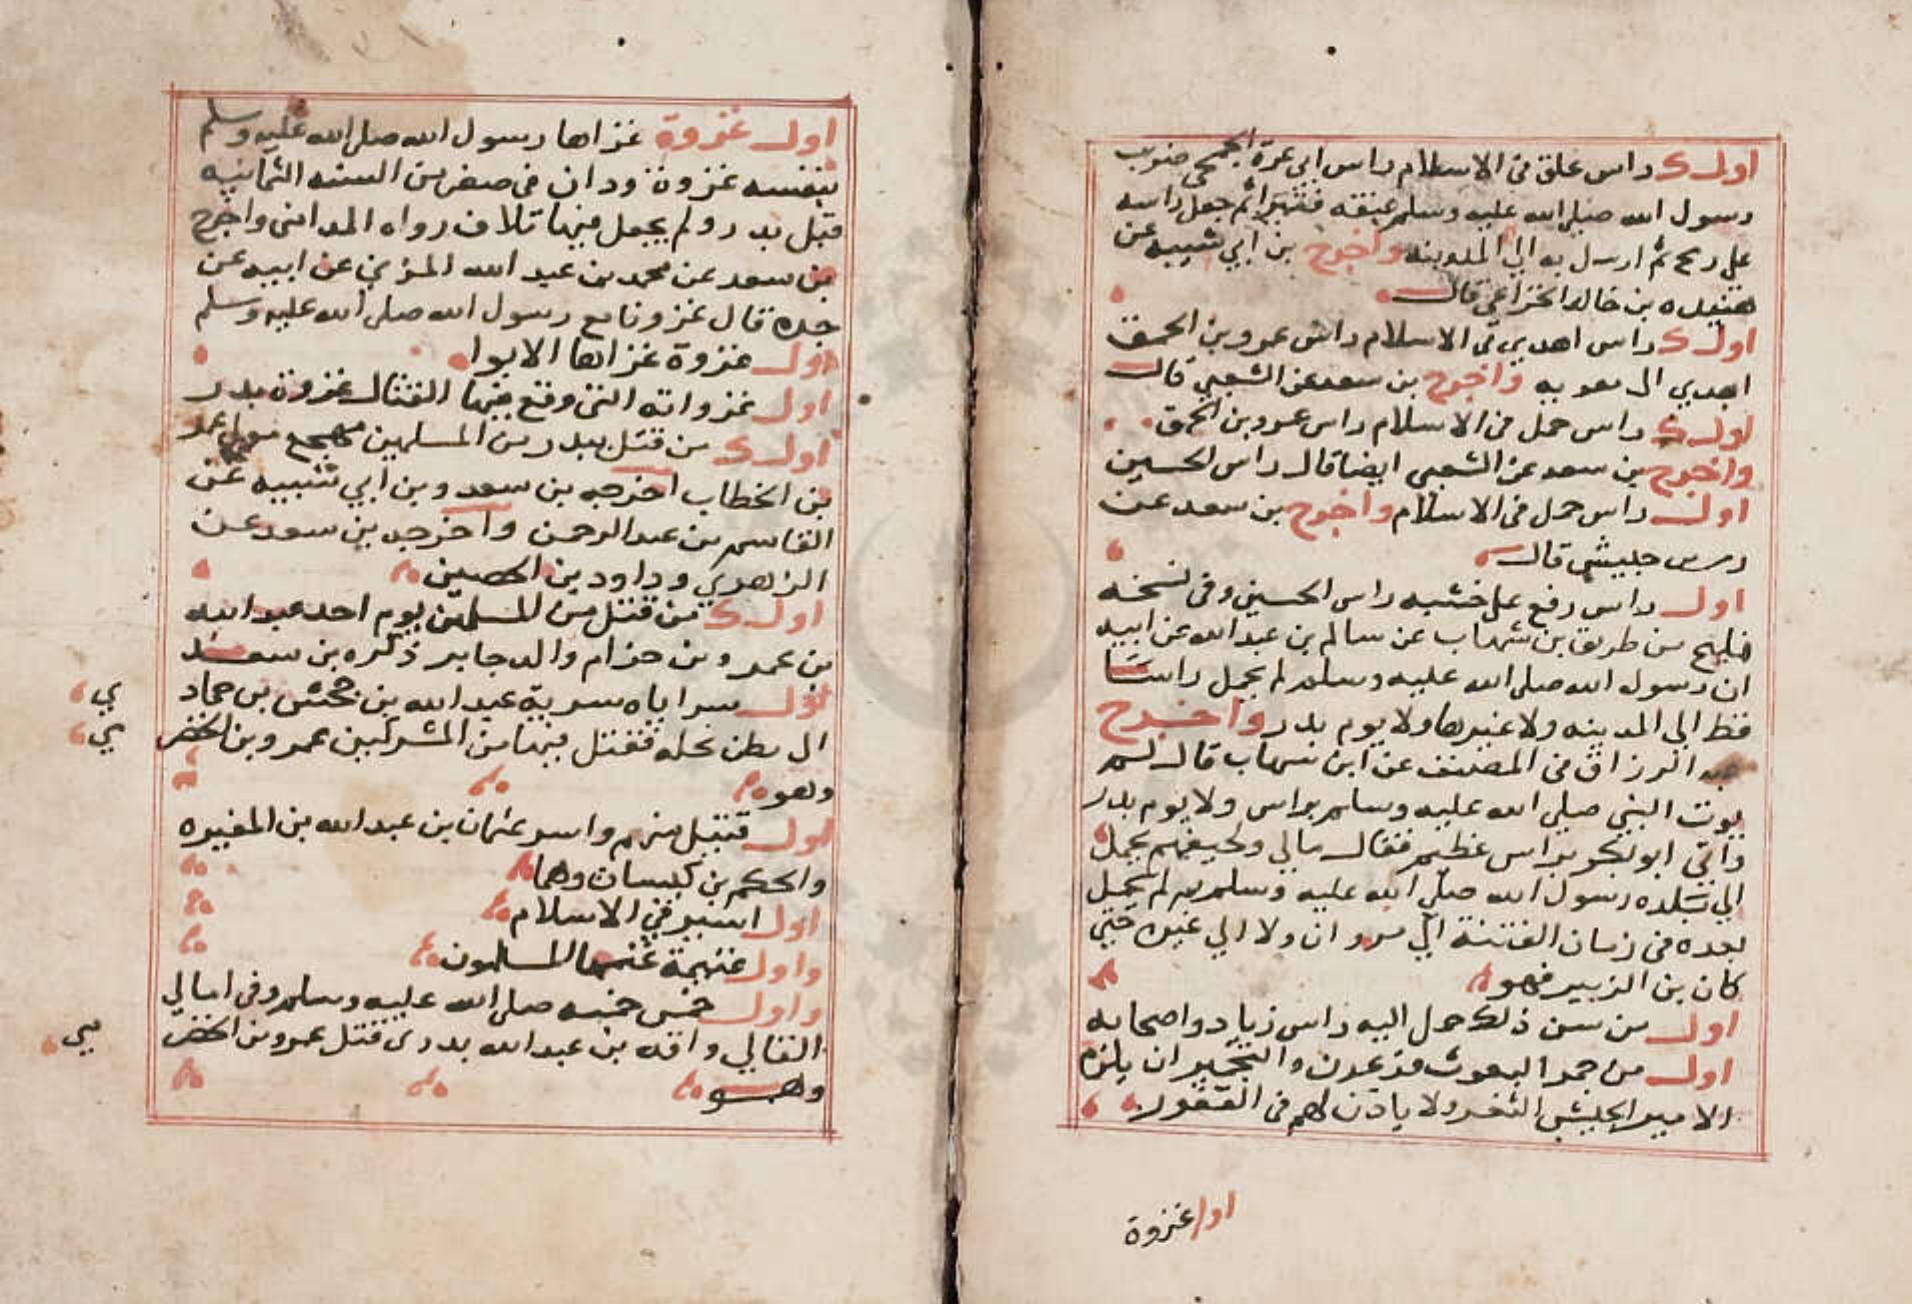 اول ك راس علق في الاسلام راس ابي عزة الجمحي ضرب
رسول الله صلي الله عليه وسلم عنقه ثم جعل راسه
علي رمح ثم ارسل به الي المدينه واخرج بن ابي شيبه عن
هنيده بن خالد الخزاعي قال
اول ك راس اهدي في الاسلام راس عمرو بن الحمق
اهدي الى معويه واخرج بن سعد عن الشعبي قال
اول ك راس حمل في الاسلام راس عمرو بن الحمق
واخرج بن سعد عن الشعبي ايضا قال راس الحسين
اول راس حمل في الاسلام واخرج بن سعد عن
قال
اول راس رفع على خشبه راس الحسين وفي نسخه
من طريق بن شهاب عن سالم بن عبد الله عن ابيه
ان رسول الله صلى الله عليه وسلم لم يحمل راسا
قط الى المدينه ولا غيرها ولا يوم بدر واخرج
عبد الرزاق في المصنف عن ابن شهاب قال لم
يوت النبي صلي الله عليه وسلم براس ولا يوم بدر
واتي ابو بكر براس عظيم فقال مالي ولجيفهم تحمل
الي بلده رسول الله صلي الله عليه وسلم ثم لم تحمل
بعده في زمان الفتنة الي مروان ولا الي غيره حتي
كان بن الزبير فهو
اول من سن ذلك حمل اليه راس زياد واصحابه
اول من جمر البعوث فرعون والتجمير ان يلزم
الامير الجيش الثغر ولا ياذن لهم في القفول
اول غزوة
اول غزوة غزاها رسول الله صلى الله عليه وسلم
بنفسه غزوة ودان في صفر من السنه الثانيه
قبل بدر ولم يجعل فيها تلاف رواه المدائني واخرج
بن سعد عن محمد بن عبد الله المزني عن ابيه عن
جده قال غزونا مع رسول الله صلى الله عليه وسلم
اول غزوة غزاها الابوا
اول غزواته التي وقع فيها القتال غزوة بدر
اول ك من قتل ببدر من المسلمين مهجع مولى عمر
بن الخطاب اخرجه بن سعد وبن ابي شيبه عن
القاسم بن عبد الرحمن واخرجه بن سعد عن
الزهري وداود بن الحصين
اول ك من قتل من المسلمين يوم احد عبد الله
بن عمرو بن حزام والد جابر ذكره بن سعد
اول سراياه سرية عبد الله بن جحش بن حماد
الى بطن نخله فقتل فيها من المشركين عمرو بن الحضر
مي
وهو
اول قتيل منهم واسر عثمان بن عبد الله بن المغيره
والحكم بن كيسان وهما
اول اسير في الاسلام
واول غنيمة غنمها المسلمون
واول خمس خمسه صلى الله عليه وسلم وفي امالي
القالي واقد بن عبد الله بدري قتل عمرو بن الحضر
مي
وهو